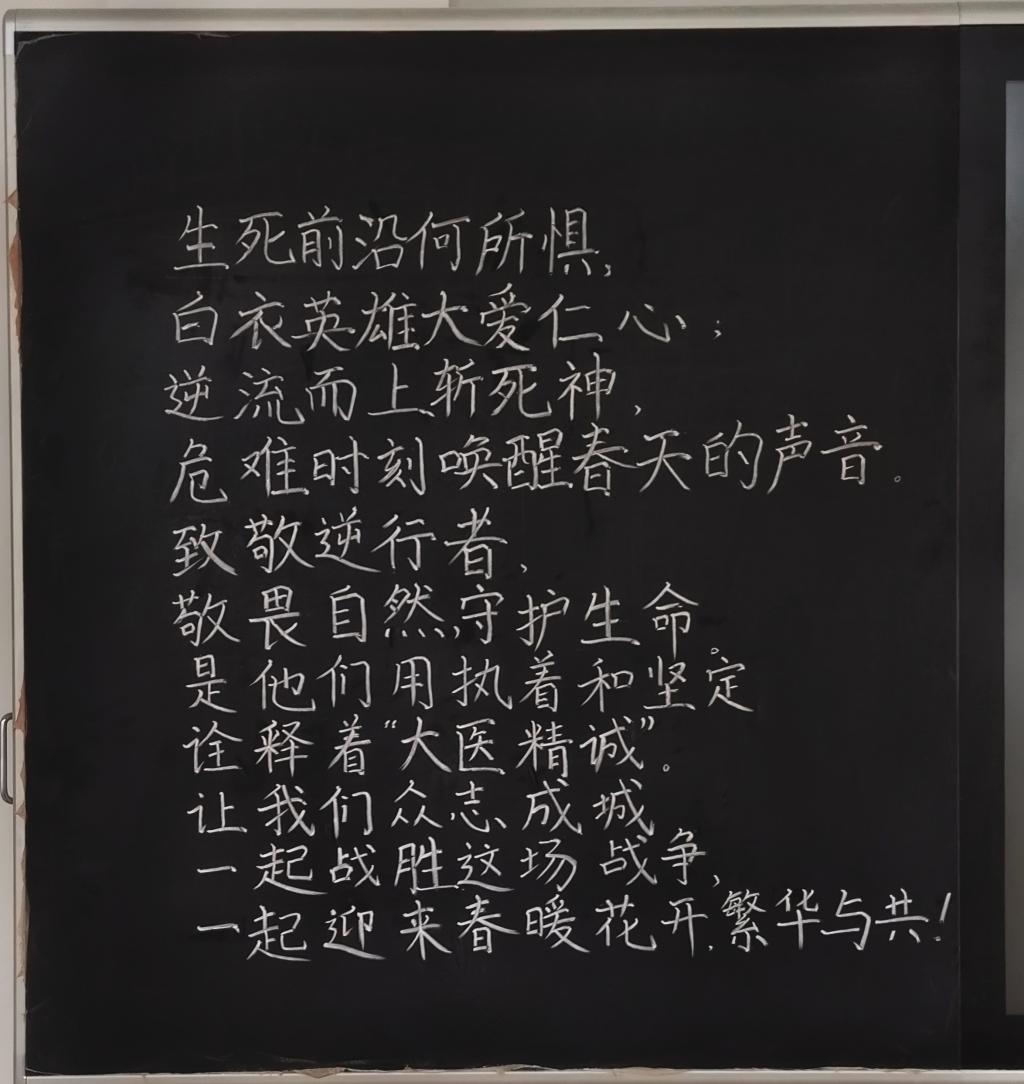 生死前沿何所惧，
白衣英雄大爱仁心；
逆流而上斩死神，
危难时刻唤醒春天的声音。
致敬逆行者，
敬畏自然，守护生命。
是他们用执着和坚定
诠释着“大医精诚”。
让我们众志成城
一起战胜这场战争，
一起迎来春暖花开，繁华与共！